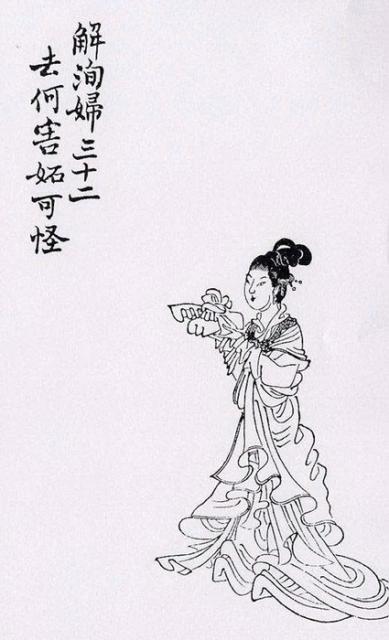 解洵婦 三十二
去何害妬可怪